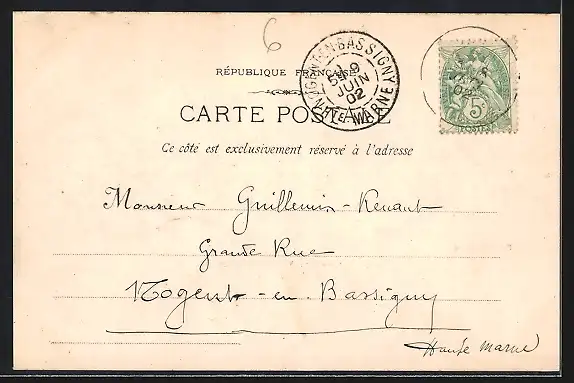 6
RÉPUBLIQUE FRANÇAISE
NOGENT-EN-BASSIGNY
9
JUIN
02
HTE MARNE
CARTE POSTALE
Ce côté est exclusivement réservé à l'adresse
5c
POSTES
Monsieur Guillemin-Renaut
Grande Rue
Nogent-en-Bassigny
Haute Marne